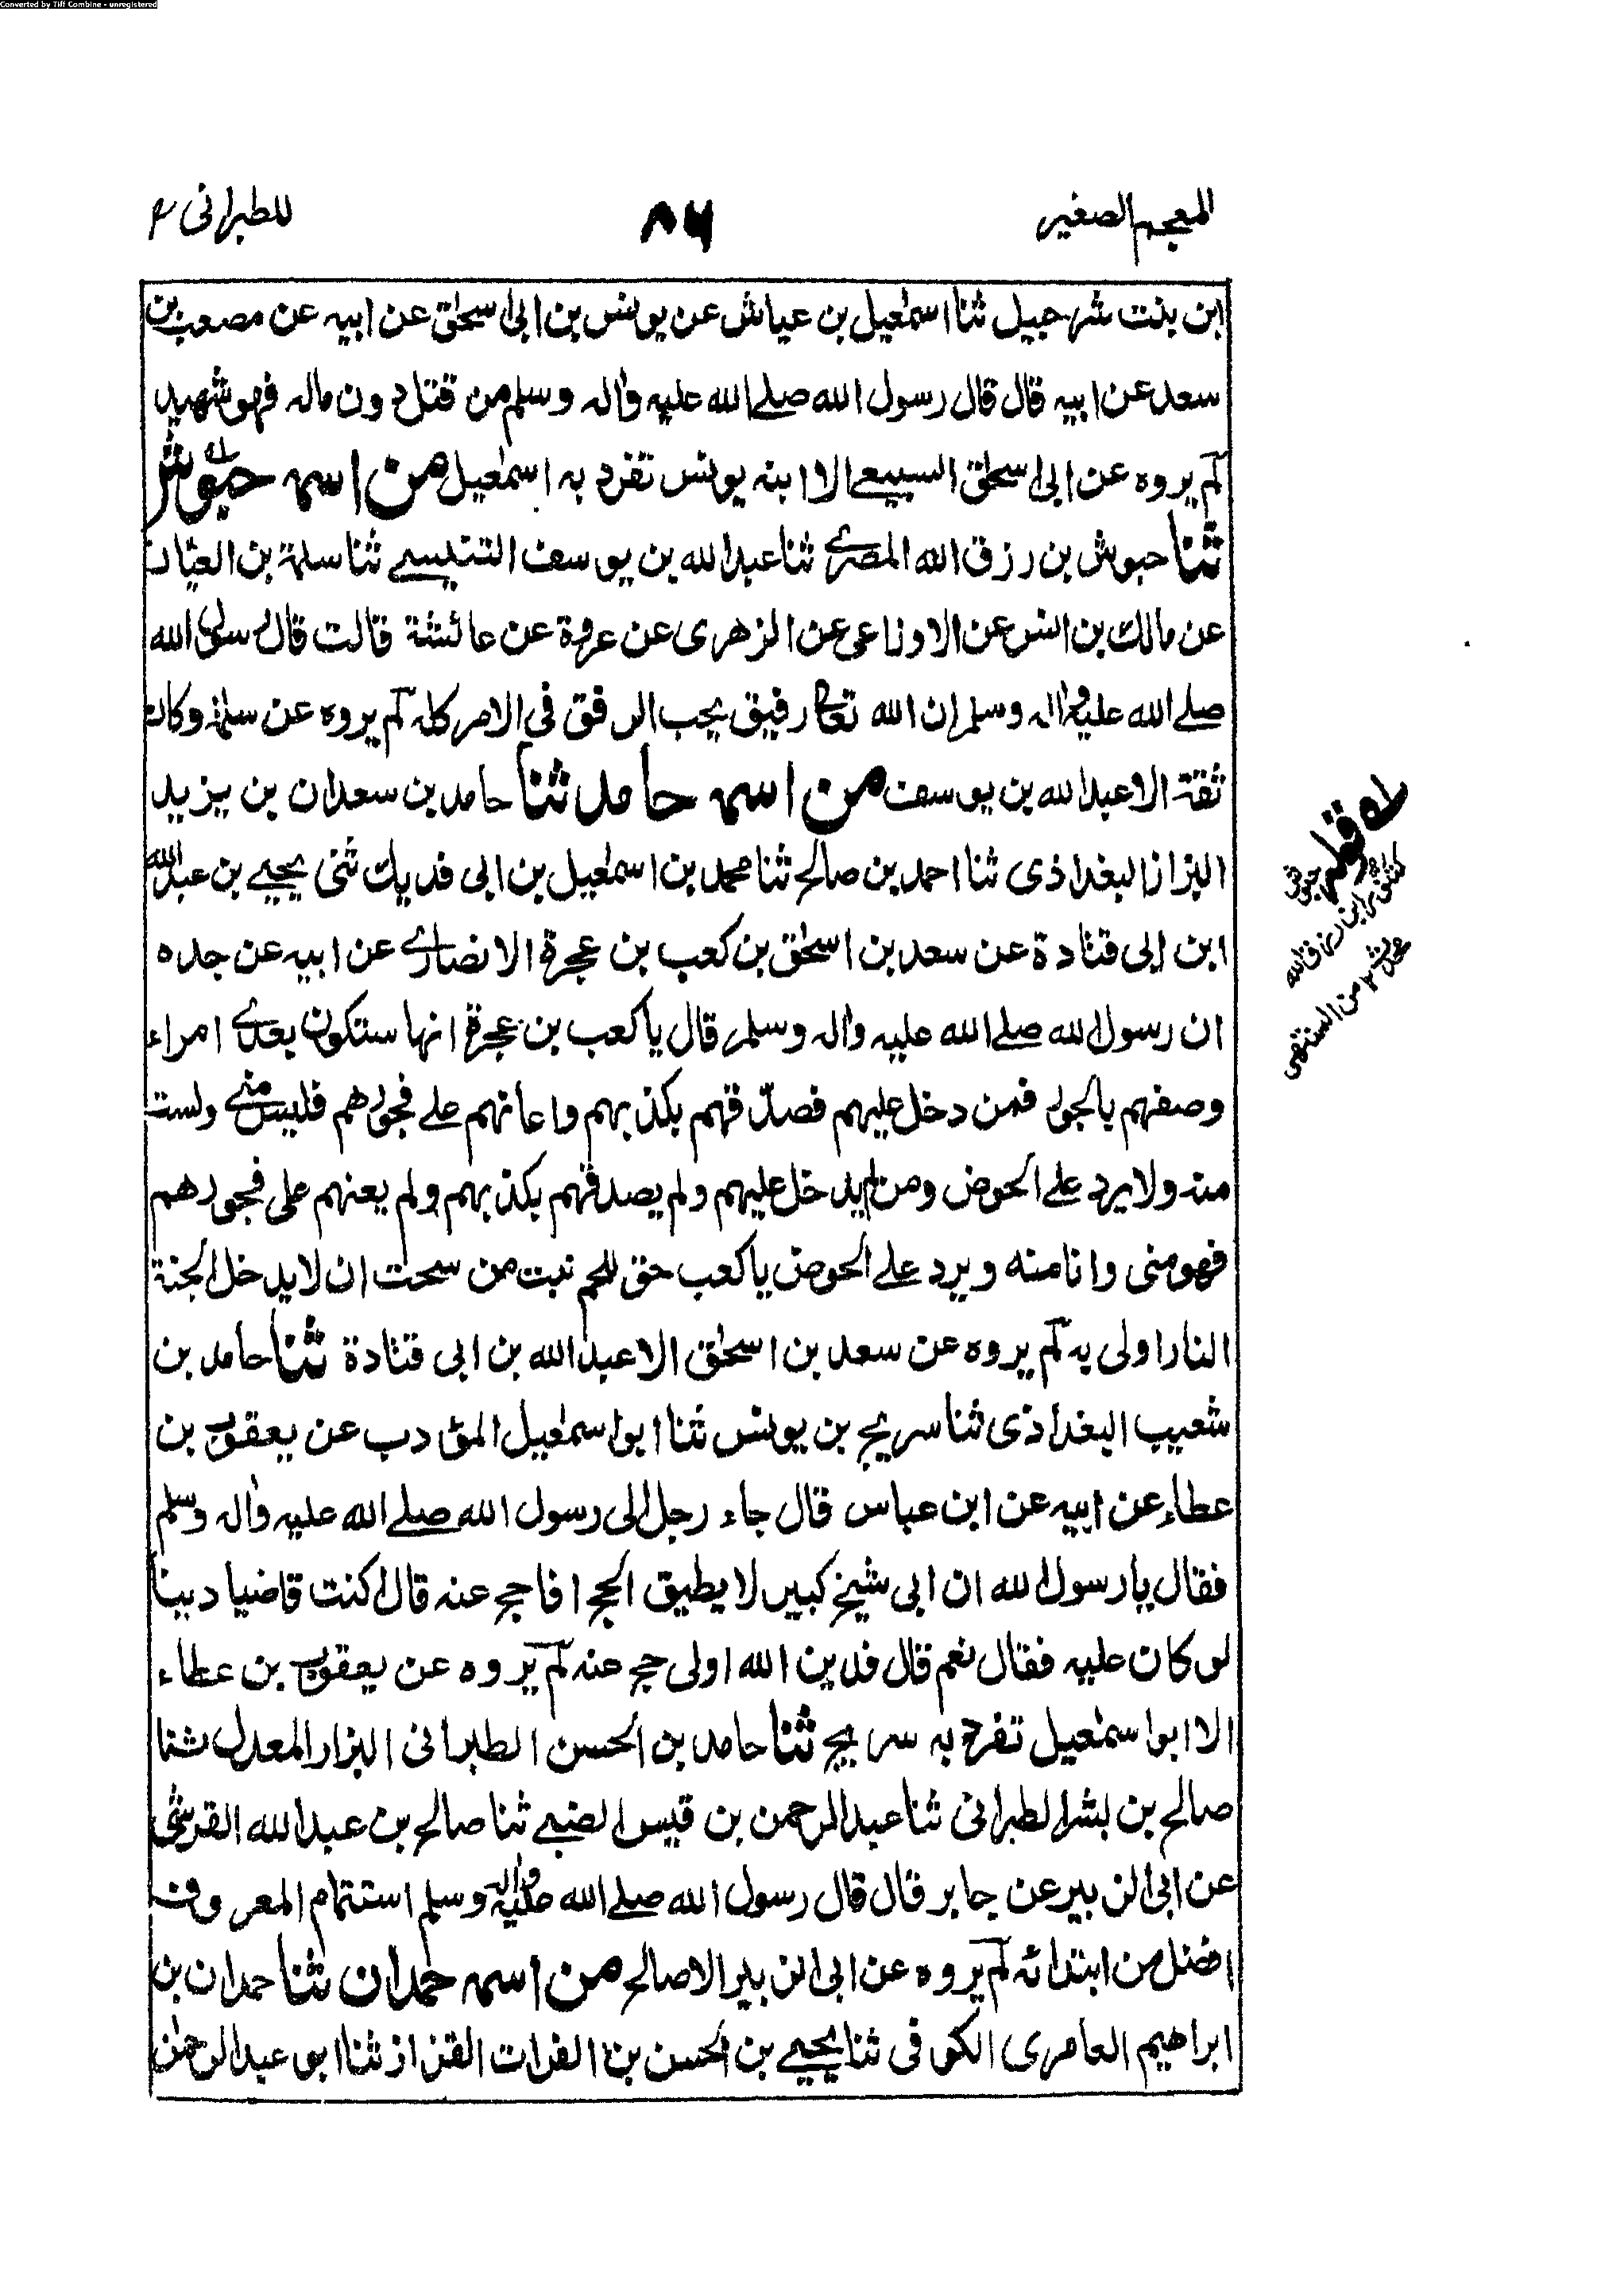 Converted by Tiff Combine - unregistered
المعجم الصغير
٨٦
للطبرانى
ابن بنت شرحبيل ثنا اسمٰعيل بن عياش عن يونس بن ابى اسحٰق عن ابيه عن مصعب بن
سعد عن ابيه قال قال رسول الله صلے الله عليه واٰله وسلم من قتل دون ماله فهو شهيد
لم يروه عن ابى اسحٰق السبيعے الا ابنه يونس تفرد به اسمٰعيل من اسمه حبّوش
ثنا حبوش بن رزق الله المصرے ثنا عبد الله بن يوسف التنيسے ثنا سلمة بن العيّار
عن مالك بن انس عن الاوزاعى عن الزهرى عن عروة عن عائشة قالت قال رسول الله
صلے الله عليه واٰله وسلم ان الله تعالى رفيق يحب الرفق في الامر كله لم يروه عن سلمة وكان
ثقة الا عبد الله بن يوسف من اسمه حامد ثنا حامد بن سعدان بن يزيد
البزاز البغداذى ثنا احمد بن صالح ثنا محمد بن اسمٰعيل بن ابى فديك ثنى يحيے بن عبد الله
ابن ابى قتادة عن سعد بن اسحٰق بن كعب بن عجرة الانصارے عن ابيه عن جده
ان رسول الله صلے الله عليه واٰله وسلم قال يا كعب بن عجرة انها ستكون بعدے امراء
وصفهم بالجور فمن دخل عليهم فصدّقهم بكذبهم واعانهم علے فجورهم فليس منے ولست
منه ولا يرد علے الحوض ومن لم يدخل عليهم ولم يصدقهم بكذبهم ولم يعنهم على فجورهم
فهو منى وانا منه ويرد علے الحوض يا كعب حق للحم نبت من سحت ان لا يدخل الجنة
النار اولى به لم يروه عن سعد بن اسحٰق الا عبد الله بن ابى قتادة ثنا حامد بن
شعيب البغداذى ثنا سريج بن يونس ثنا ابو اسمٰعيل المؤدب عن يعقوب بن
عطاء عن ابيه عن ابن عباس قال جاء رجل الى رسول الله صلے الله عليه واٰله وسلم
فقال يا رسول الله ان ابى شيخ كبير لا يطيق الحج افاحج عنه قال اكنت قاضيا دينا
لو كان عليه فقال نعم قال فدين الله اولى حج عنه لم يروه عن يعقوب بن عطاء
الا ابو اسمٰعيل تفرد به سريج ثنا حامد بن الحسن الطبرانى البزار المعدل ثنا
صالح بن بشر الطبرانى ثنا عبد الرحمن بن قيس الضبے ثنا صالح بن عبد الله القرشى
عن ابى الزبير عن جابر قال قال رسول الله صلے الله عليه واٰله وسلم استتمام المعروف
افضل من ابتدائه لم يروه عن ابى الزبير الا صالح من اسمه حمدان ثنا حمدان بن
ابراهيم العامرى الكوفى ثنا يحيے بن الحسن بن الفرات القزاز ثنا ابو عبد الرحمٰن
له قوله حبوش
كتنور ابن رزق الله
محدث ١٢ من المنتهى